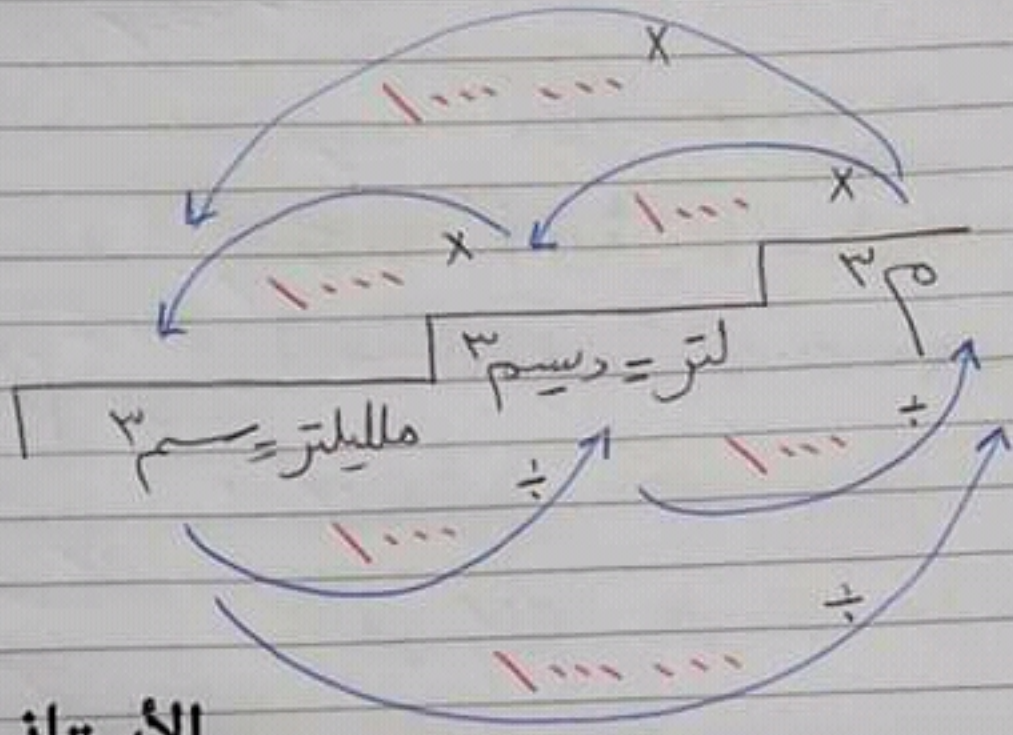 × ١٠٠٠ ٠٠٠
× ١٠٠٠
× ١٠٠٠
م٣
لتر = دسيم٣
ملليلتر = سم٣
÷ ١٠٠٠
÷ ١٠٠٠
÷ ١٠٠٠ ٠٠٠